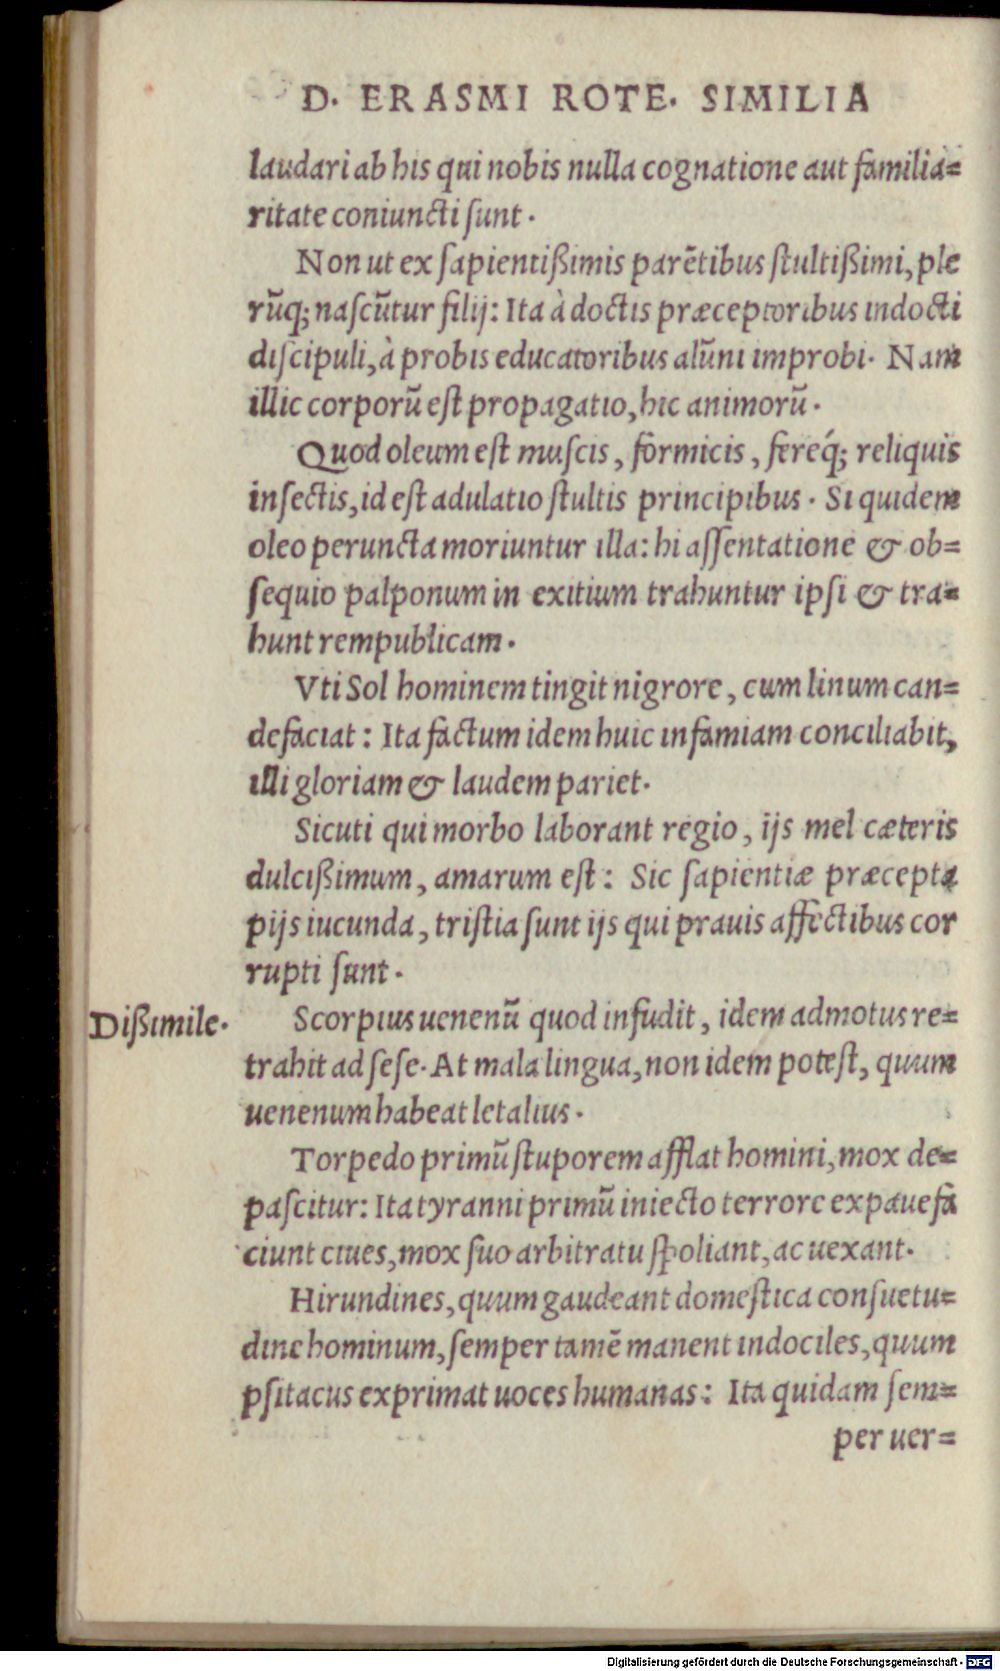 D. ERASMI ROTE. SIMILIA
laudari ab his qui nobis nulla cognatione aut familia=
ritate coniuncti ſunt.
Non ut ex ſapientißimis parētibus ſtultißimi, ple
rūq; naſcūtur filij: Ita à doctis præceptoribus indocti
diſcipuli, à probis educatoribus alūni improbi. Nam
illic corporū eſt propagatio, hic animorū.
Quod oleum eſt muſcis, formicis, fereq́; reliquis
inſectis, id eſt adulatio ſtultis principibus. Si quidem
oleo peruncta moriuntur illa: hi aſſentatione & ob=
ſequio palponum in exitium trahuntur ipſi & tra=
hunt rempublicam.
Vti Sol hominem tingit nigrore, cum linum can=
defaciat: Ita factum idem huic infamiam conciliabit,
illi gloriam & laudem pariet.
Sicuti qui morbo laborant regio, ijs mel cæteris
dulcißimum, amarum eſt: Sic ſapientiæ præcepta
pijs iucunda, triſtia ſunt ijs qui prauis affectibus cor
rupti ſunt.
Dißimile.
Scorpius uenenū quod infudit, idem admotus re=
trahit ad ſeſe. At mala lingua, non idem poteſt, quum
uenenum habeat letalius.
Torpedo primū ſtuporem afflat homini, mox de=
paſcitur: Ita tyranni primū iniecto terrore expauefa
ciunt ciues, mox ſuo arbitratu ſpoliant, ac uexant.
Hirundines, quum gaudeant domeſtica conſuetu=
dine hominum, ſemper tamē manent indociles, quum
pſitacus exprimat uoces humanas: Ita quidam ſem=
per uer=
Digitalisierung gefördert durch die Deutsche Forschungsgemeinschaft - DFG